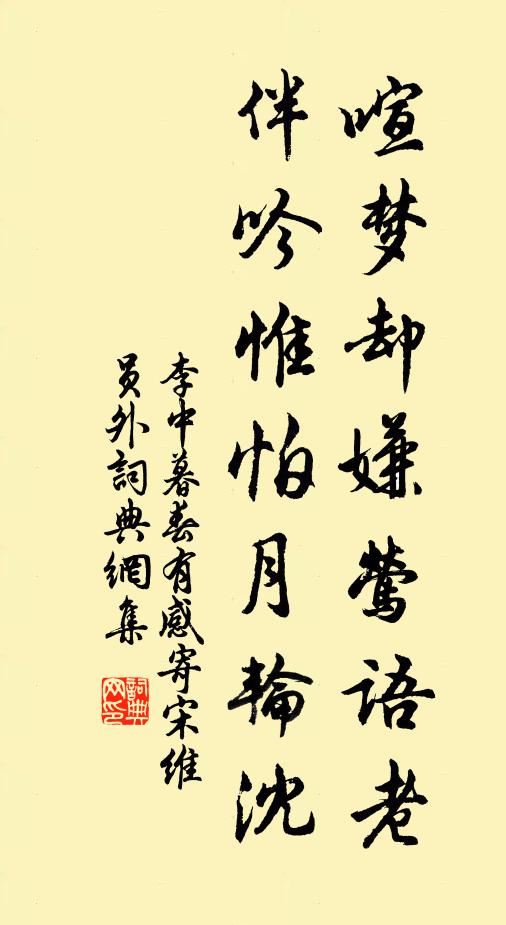 喧梦却嫌莺语老
伴吟惟怕月轮沈
李中暮春有感寄宋维
员外詞典網集
詞典网印